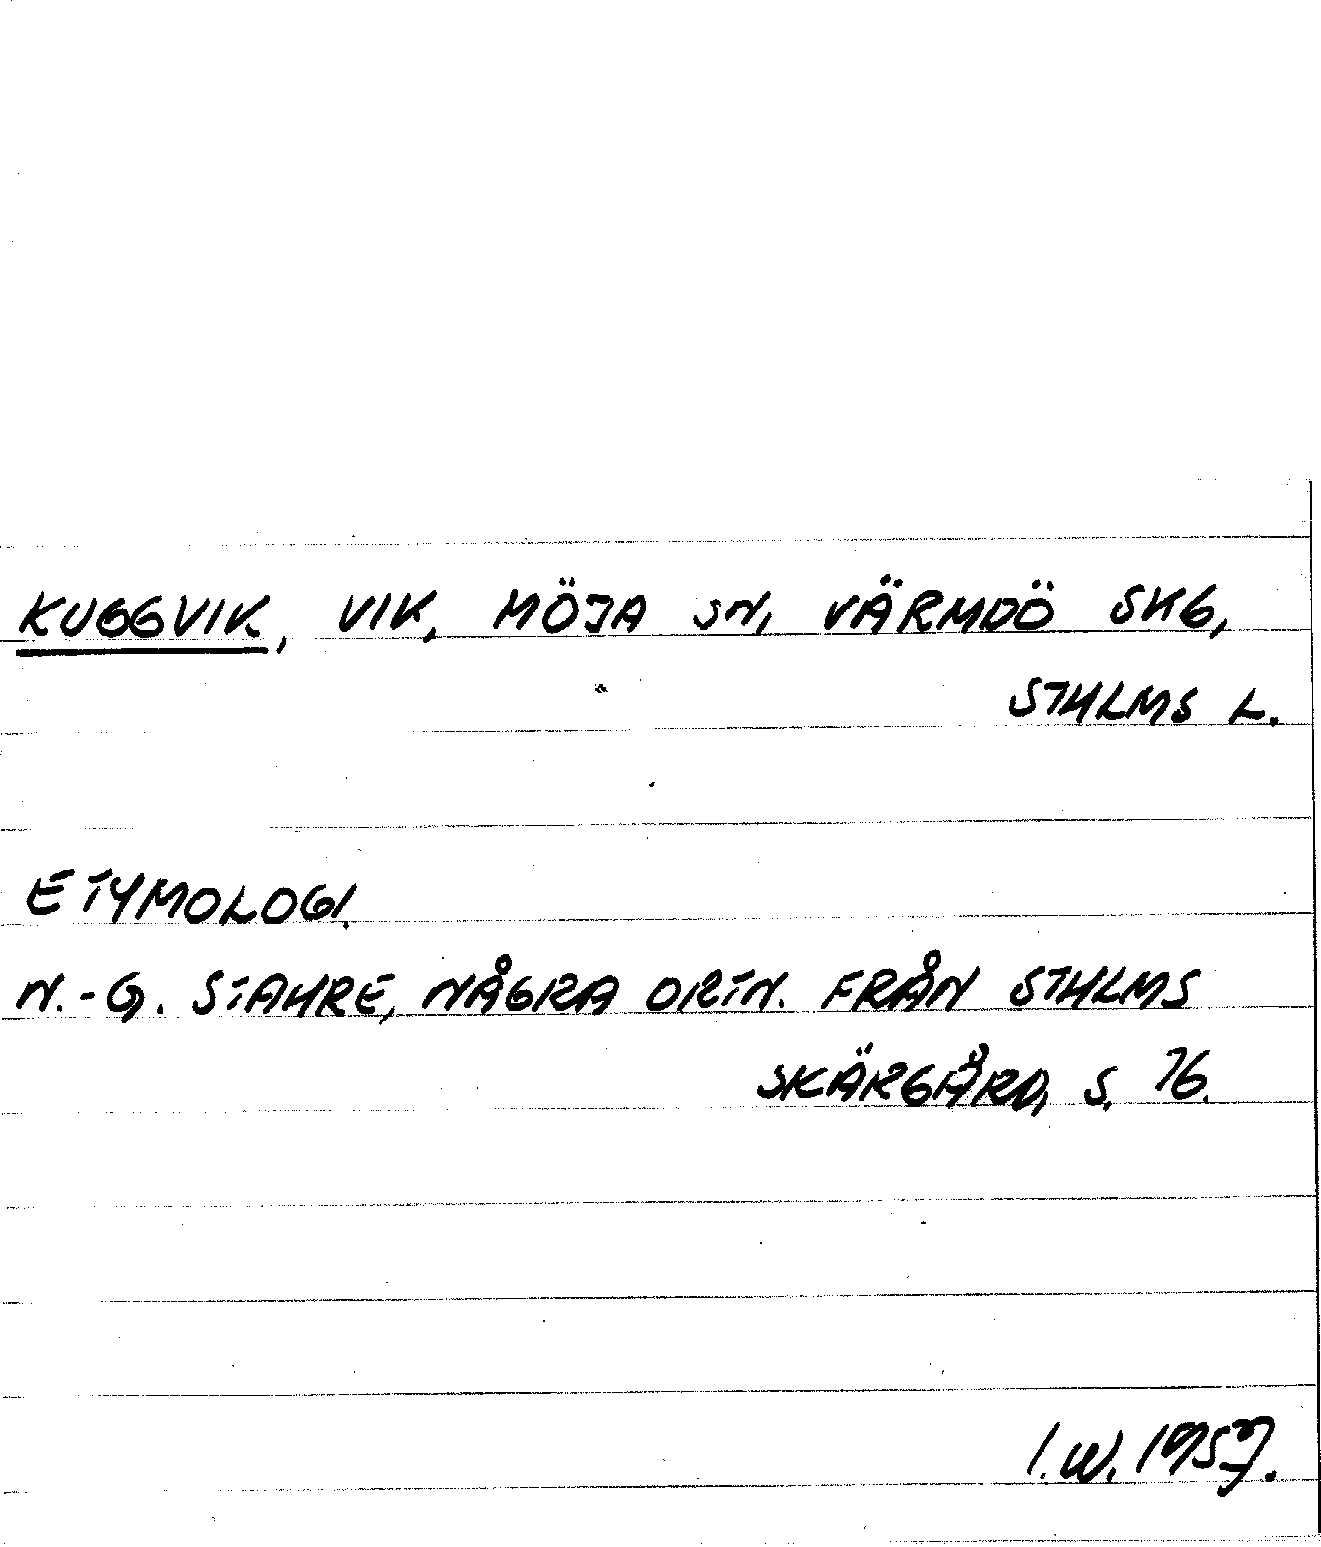 KUGGVIK, VIK, MÖJA SN, VÄRMDÖ SKG,
STHLMS L.
ETYMOLOGI.
N.-G. STAHRE, NÅGRA ORTN. FRÅN STHLMS
SKÄRGÅRD, S. 76.
I.W. 1957.